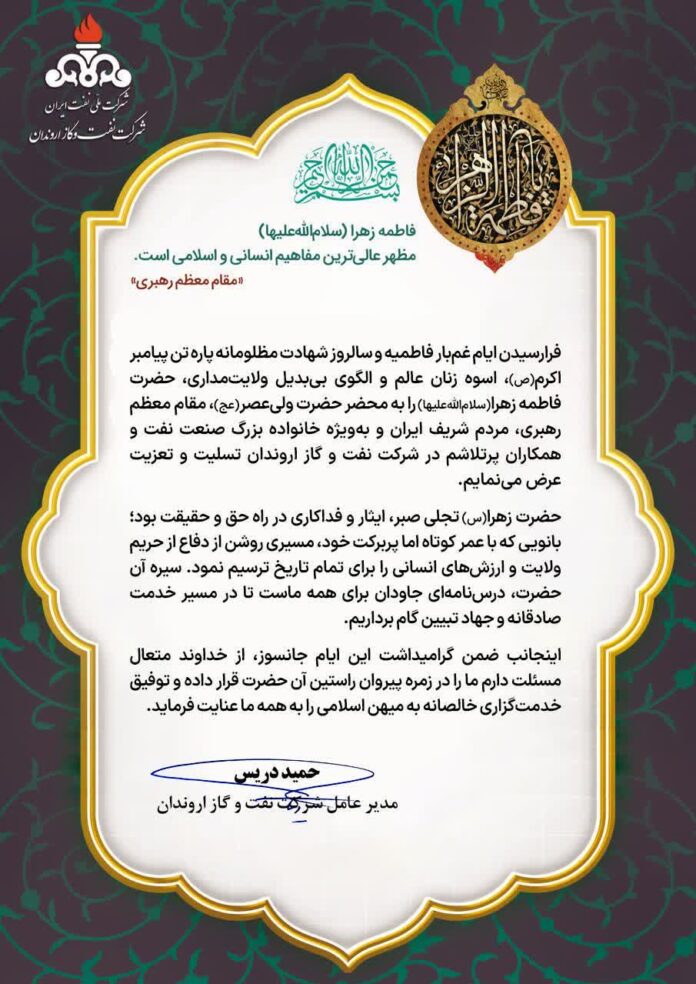 شرکت ملی نفت ایران
شرکت نفت و گاز اروندان
یا فاطمة الزهرا
بسم الله الرحمن الرحیم
فاطمه زهرا (سلام‌الله‌علیها)
مظهر عالی‌ترین مفاهیم انسانی و اسلامی است.
«مقام معظم رهبری»
فرارسیدن ایام غم‌بار فاطمیه و سالروز شهادت مظلومانه پاره تن پیامبر
اکرم(ص)، اسوه زنان عالم و الگوی بی‌بدیل ولایت‌مداری، حضرت
فاطمه زهرا(سلام‌الله‌علیها) را به محضر حضرت ولی‌عصر(عج)، مقام معظم
رهبری، مردم شریف ایران و به‌ویژه خانواده بزرگ صنعت نفت و
همکاران پرتلاشم در شرکت نفت و گاز اروندان تسلیت و تعزیت
عرض می‌نمایم.
حضرت زهرا(س) تجلی صبر، ایثار و فداکاری در راه حق و حقیقت بود؛
بانویی که با عمر کوتاه اما پربرکت خود، مسیری روشن از دفاع از حریم
ولایت و ارزش‌های انسانی را برای تمام تاریخ ترسیم نمود. سیره آن
حضرت، درس‌نامه‌ای جاودان برای همه ماست تا در مسیر خدمت
صادقانه و جهاد تبیین گام برداریم.
اینجانب ضمن گرامیداشت این ایام جانسوز، از خداوند متعال
مسئلت دارم ما را در زمره پیروان راستین آن حضرت قرار داده و توفیق
خدمت‌گزاری خالصانه به میهن اسلامی را به همه ما عنایت فرماید.
حمید دریس
مدیر عامل شرکت نفت و گاز اروندان